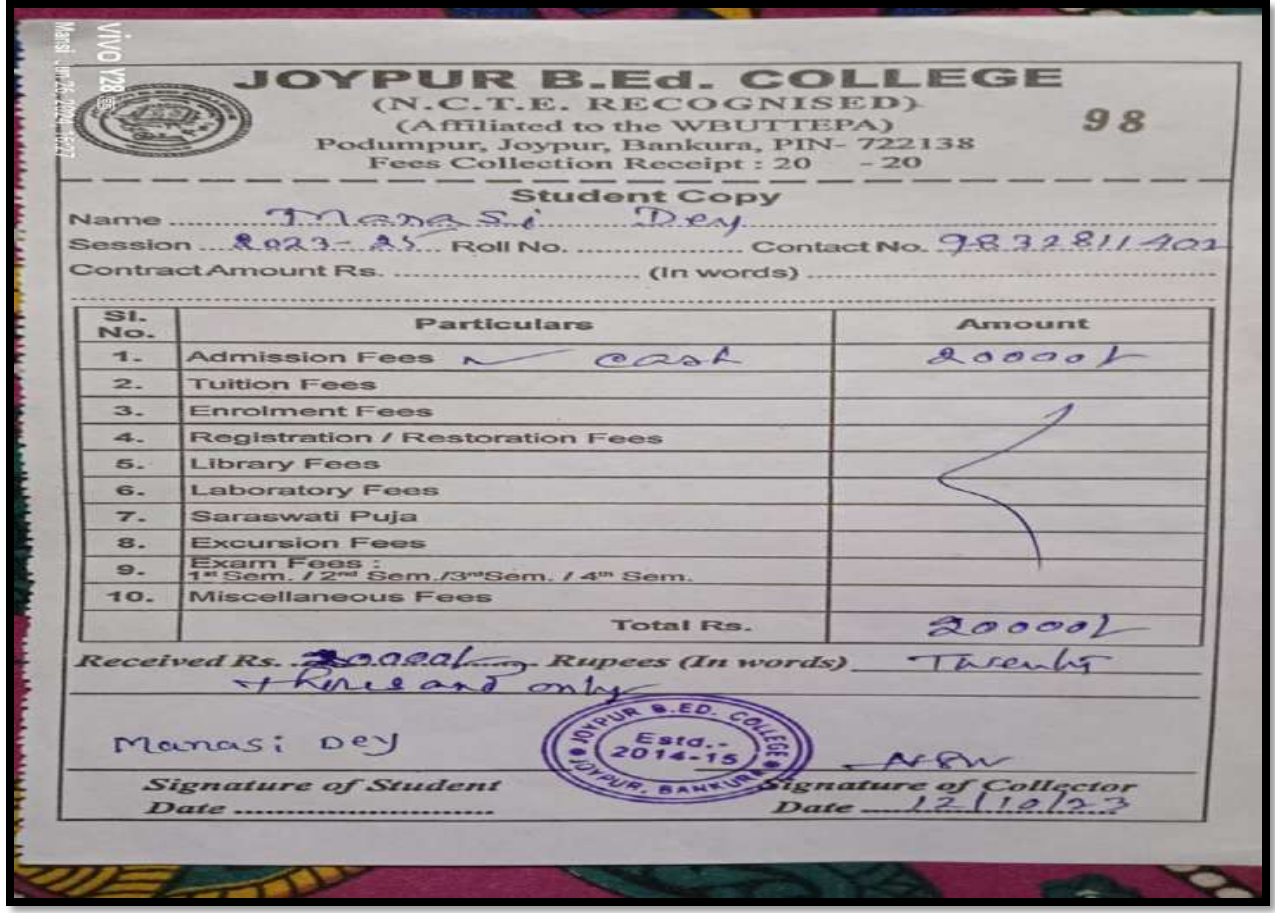 JOYPUR B.Ed. COLLEGE
(N.C.T.E. RECOGNISED)
98
(Affiliated to the WBUTTEPA)
Podumpur, Joypur, Bankura, PIN- 722138
Fees Collection Receipt : 20 - 20
Student Copy
Name Manasi Dey
Session 2023-25 Roll No. Contact No. 9832811402
Contract Amount Rs. (In words)
Sl. No. Particulars Amount
1. Admission Fees cash 20000/-
2. Tuition Fees
3. Enrolment Fees
4. Registration / Restoration Fees
5. Library Fees
6. Laboratory Fees
7. Saraswati Puja
8. Excursion Fees
9. Exam Fees :
1st Sem. / 2nd Sem./3rdSem. / 4th Sem.
10. Miscellaneous Fees
Total Rs. 20000/-
Received Rs. 20000/- Rupees (In words) Twenty
thousand only
JOYPUR B.ED. COLLEGE
Estd.-
2014-15
JOYPUR, BANKURA
Manasi Dey
Signature of Student Signature of Collector
Date Date 12/10/23
vivo Y28